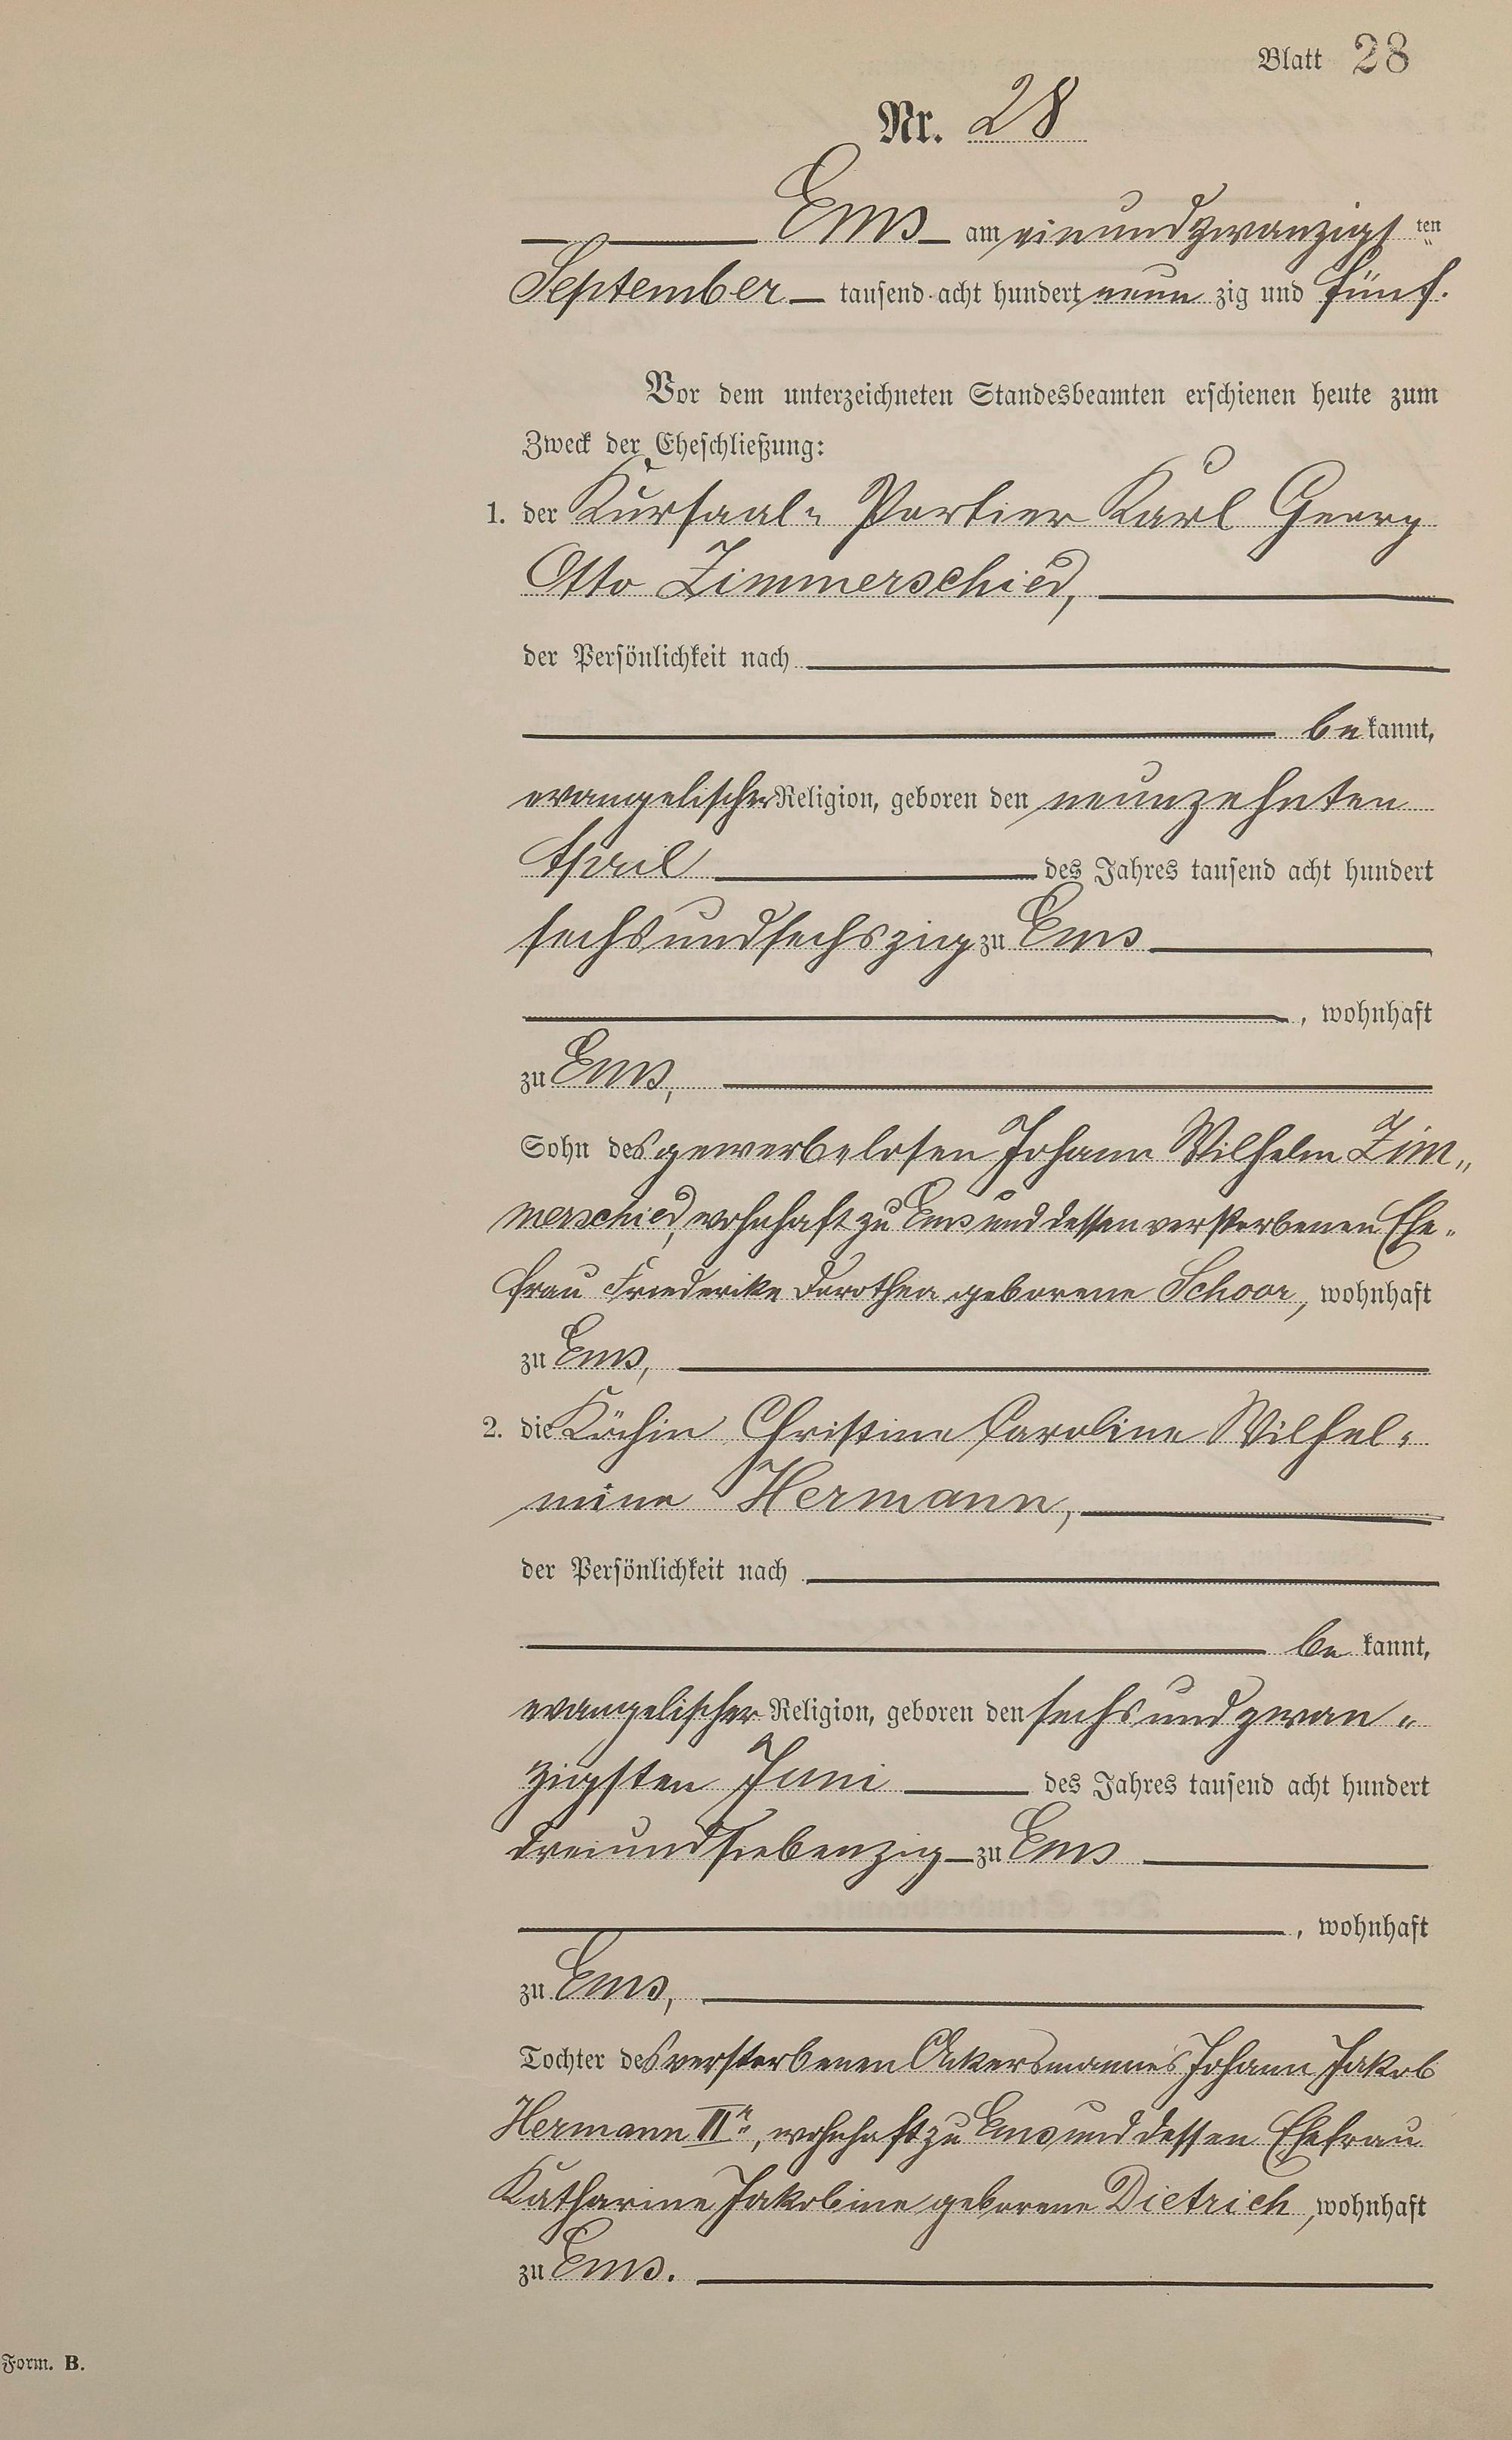 Blatt 28
Nr. 28
Ems am einundzwanzigsten
September tausend acht hundert neunzig und fünf.
Vor dem unterzeichneten Standesbeamten erschienen heute zum
Zweck der Eheschließung:
1. der Kursaal-Portier Karl Georg
Otto Zimmerschied,
der Persönlichkeit nach
bekannt,
evangelischer Religion, geboren den neunzehnten
April des Jahres tausend acht hundert
sechsundsechszig zu Ems
, wohnhaft
zu Ems,
Sohn des gewerbelosen Johann Wilhelm Zim-
merschied, wohnhaft zu Ems und dessen verstorbenen Ehe-
frau Friederike Dorothea geborene Schoor, wohnhaft
zu Ems,
2. die Köchin Christine Caroline Wilhel-
mine Hermann,
der Persönlichkeit nach
bekannt,
evangelischer Religion, geboren den sechsundzwan-
zigsten Juni des Jahres tausend acht hundert
dreiundsiebenzig zu Ems
, wohnhaft
zu Ems,
Tochter des verstorbenen Ackersmannes Johann Jakob
Hermann IIr, wohnhaft zu Ems und dessen Ehefrau
Katharine Jakobine geborene Dietrich, wohnhaft
zu Ems.
Form. B.